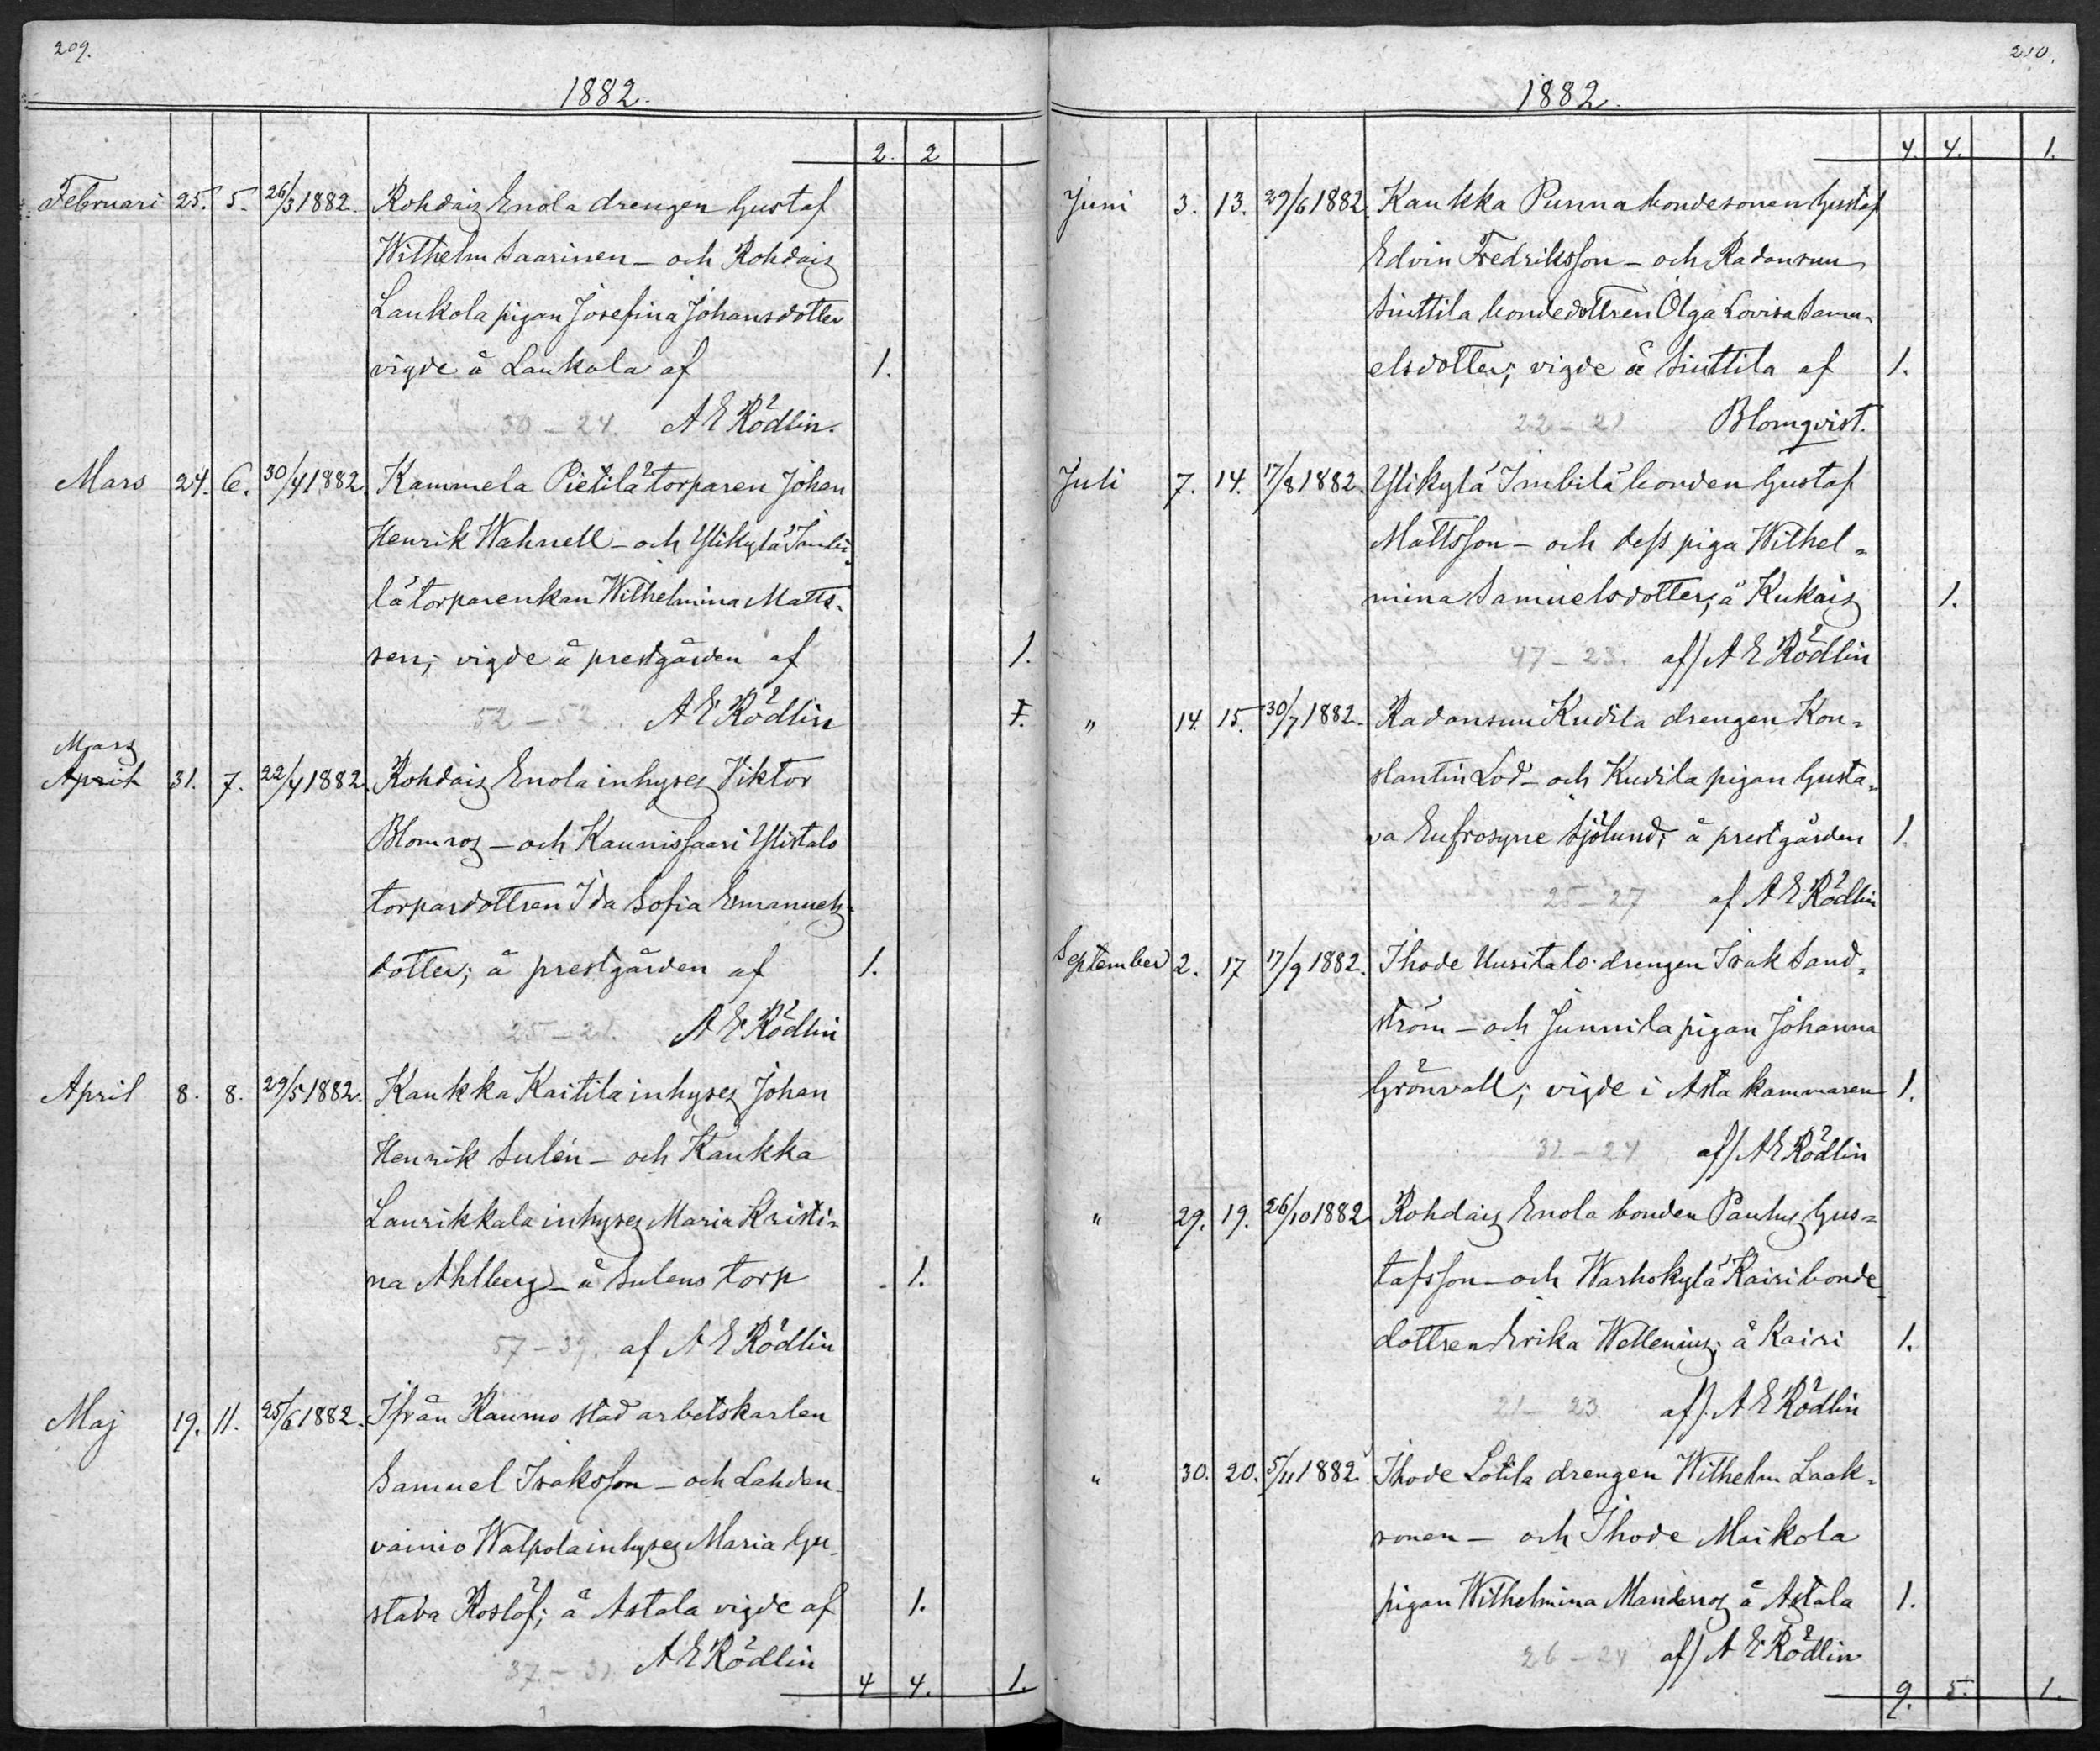 209.
1882.
2. 2
Februari 25. 5. 26/3 1882. Rohdais Enola drengen Gustaf
Wilhelm Saarinen – och Rohdais
Laukola pigan Josefina Johansdotter
vigde å Laukola af 1.
30 – 24. A E Rödlin.
Mars 24. 6. 30/4 1882. Kammela Pietilä torparen Johan
Henrik Wahnell – och Ylikylä Imbi-
lä torparenkan Wilhelmina Matts-
sen; vigde å prestgården af 1.
52 – 52. A E Rödlin 1.
Mars
April 31. 7. 22/4 1882. Rohdais Enola inhyses Viktor
Blomros – och Kaunissaari Ylistalo
torpardottren Ida Sofia Emanuels-
dotter; å prestgården af 1.
25 – 21. A E Rödlin
April 8. 8. 29/5 1882. Kaukka Kaitila inhyses Johan
Henrik Sulén – och Kaukka
Laurikkala inhyses Maria Kristi=
na Ahlberg – å Sulens torp 1.
57 – 39. af A E Rödlin
Maj 19. 11. 25/6 1882. Ifrån Raumo stad arbetskarlen
Samuel Isaksson – och Lahden-
vainio Walpola inhyses Maria Gu-
stava Roslöf; å Astala vigde af 1.
37 – A E Rödlin
4 4. 1.
210.
1882.
4. 4. 1.
Juni 3. 13. 29/6 1882. Kaukka Punna bondesonen Gustaf
Edvin Fredriksson – och Radansuu
Sinttila bondedottren Olga Lovisa Samu-
elsdotter; vigde å Sinttila af 1.
22 – 21 Blomqvist.
Juli 7. 14. 17/8 1882. Ylikylä Imbilä bonden Gustaf
Mattsson – och dess piga Wilhel=
mina Samuelsdotter; å Kukais 1.
47 – 23. af) A E Rödlin
" 14. 15. 30/7 1882. Radansuu Kudila drengen Kon=
stantin Lod – och Kudila pigan Gusta=
va Eufrosyne Sjölund; å prestgården 1.
25 – 27 af A E Rödlin
September 2. 17 17/9 1882. Ihode Uusitalo drengen Isak Sand=
ström – och Junnila pigan Johanna
Grönvall; vigde i Asta kammaren 1.
31 – 24 af) A E Rödlin
" 29. 19. 26/10 1882 Rohdais Enola bonden Paulus Gus=
tafsson – och Warhokylä Kairi bonde
dottren Erika Wellenius; å Kairi 1.
21 – 23 af). A E Rödlin
" 30. 20. 5/11 1882. Ihode Lotila drengen Wilhelm Laak=
sonen – och Ihode Maikola
pigan Wilhelmina Manderros å Astala 1.
26 – 24 af) A E Rödlin
9. 5. 1.